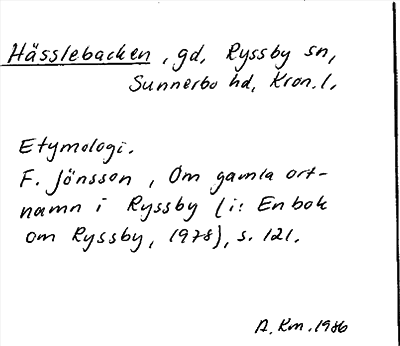 Hässlebacken, gd, Ryssby sn,
Sunnerbo hd, Kron. l.
Etymologi.
F. Jönsson, Om gamla ort-
namn i Ryssby (i: En bok
om Ryssby, 1978), s. 121.
A. Km. 1986